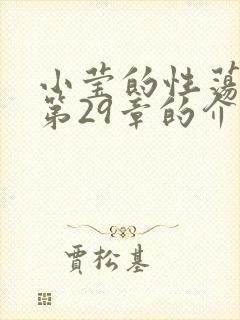 小莹的性荡
第29章的介
贾松基